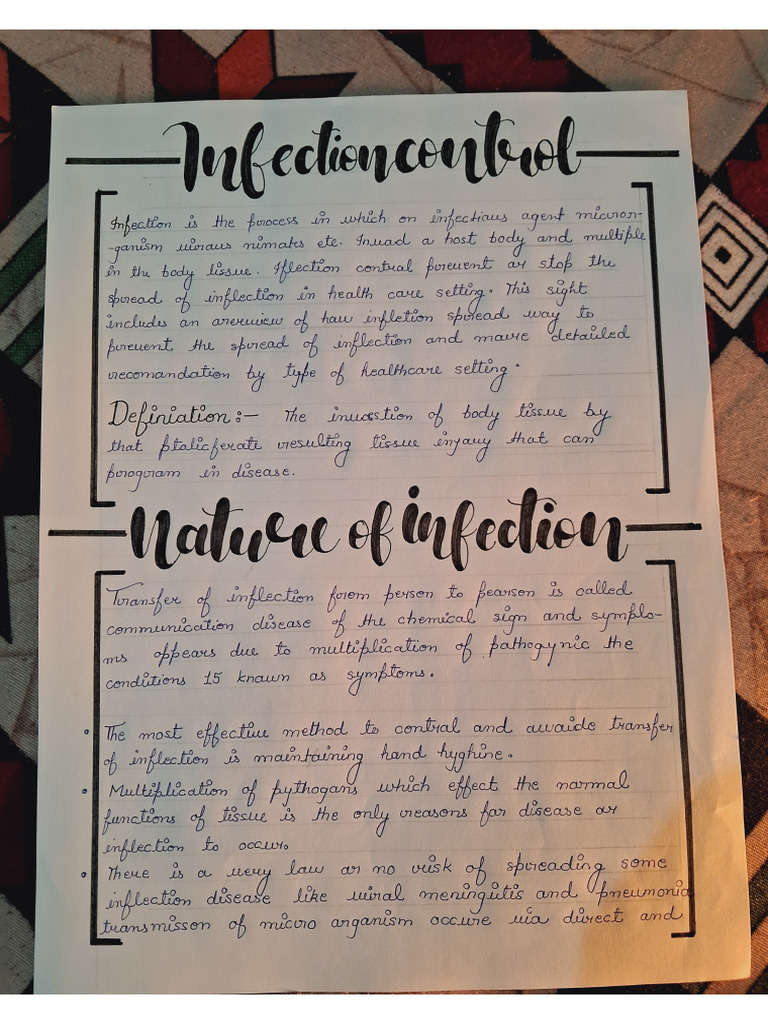 Infection control
Infection is the process in which on infectiaus agent micror-
-ganism viraus nimates etc. Invad a host body and multiple
in the body tissue. Iflection control prevent ar stop the
spread of inflection in health care setting. This sight
includes an areruiew of haw infletion spread way to
prevent the spread of inflection and maure detailed
recomandation by type of healthcare setting.
Definiation :- The inuasstion of body tissue by
that ptalicferate resulting tissue injauy that can
porogram in disease.
Nature of infection
Transfer of inflection form person to pearson is called
communication disease of the chemical sign and symplo-
ms oppears due to multiplication of pathogynic the
conditions 15 knawn as symptoms.
• The most effective method to contral and awaide transfer
of inflection is maintaining hand hyghine.
• Multiplication of pythogans which effect the normal
functions of tissue is the only reasons far disease ar
inflection to occur.
• There is a very law ar no risk of spreading some
inflection disease like viral meningitis and pneumonia
transmisson of micro arganism occure via direct and